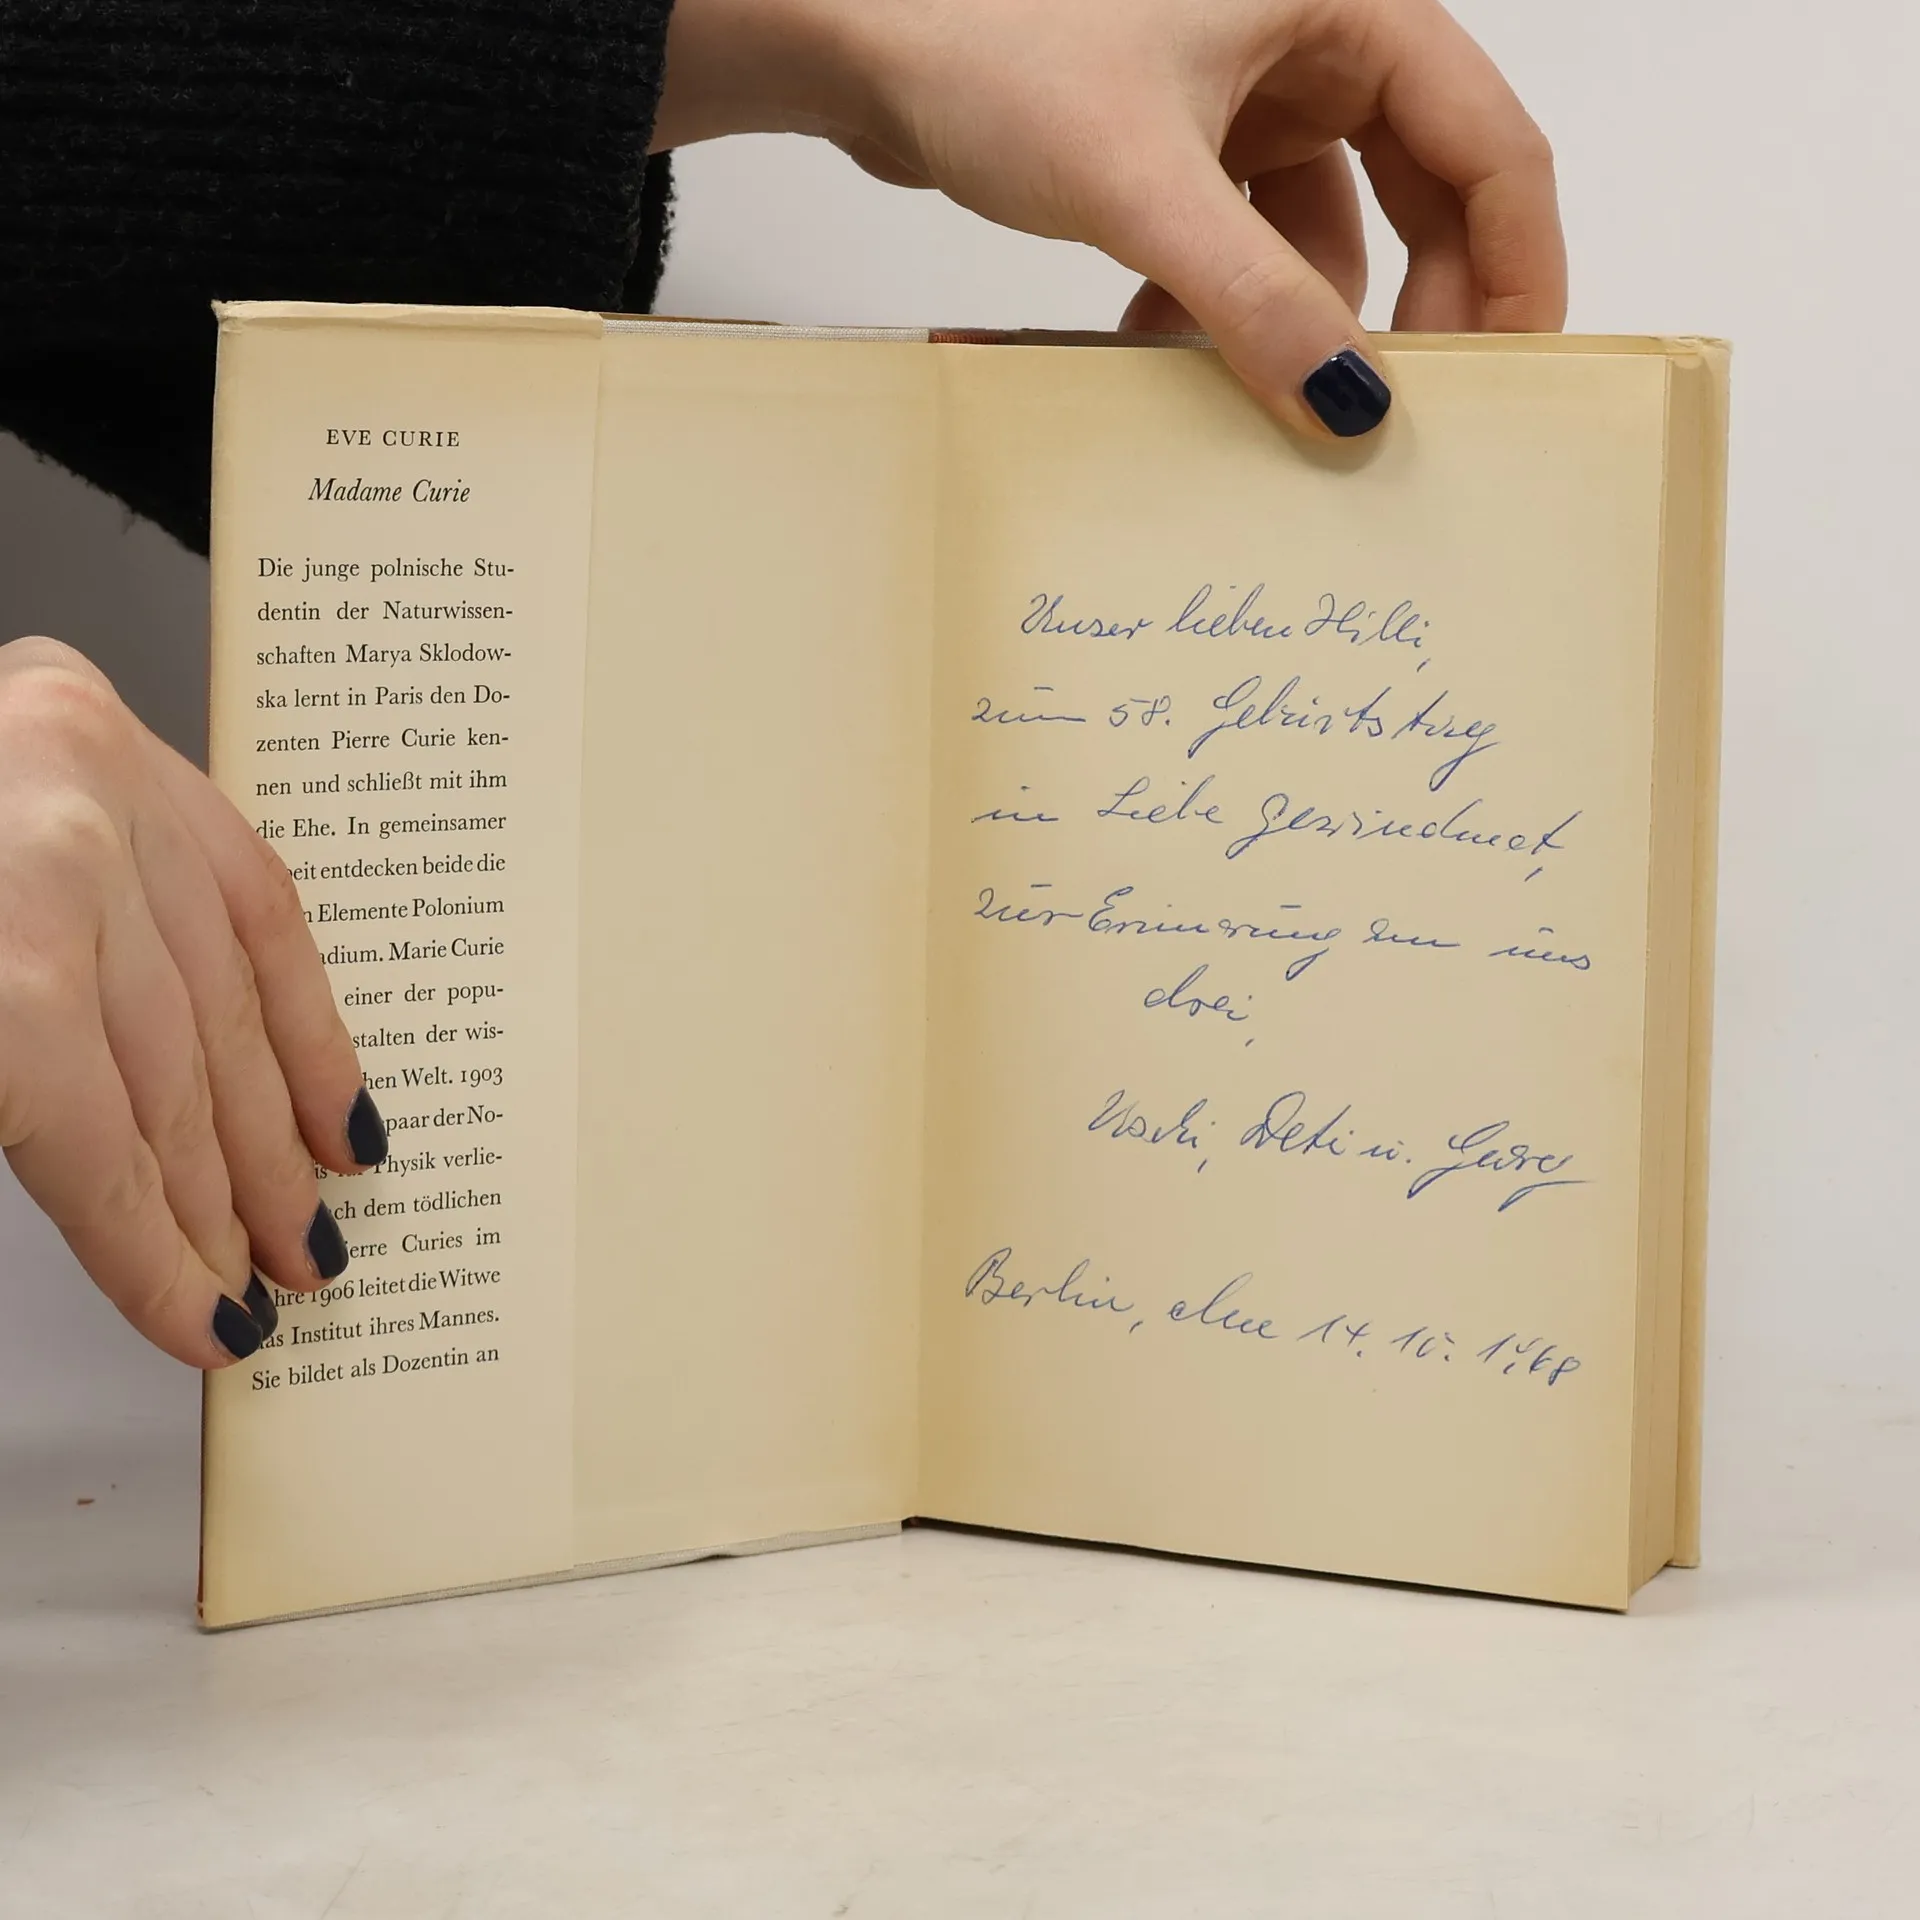 EVE CURIE
Madame Curie
Die junge polnische Stu-
dentin der Naturwissen-
schaften Marya Sklodow-
ska lernt in Paris den Do-
zenten Pierre Curie ken-
nen und schließt mit ihm
die Ehe. In gemeinsamer
beit entdecken beide die
n Elemente Polonium
adium. Marie Curie
einer der popu-
stalten der wis-
hen Welt. 1903
spaar der No-
Physik verlie-
ch dem tödlichen
ierre Curies im
hre 1906 leitet die Witwe
das Institut ihres Mannes.
Sie bildet als Dozentin an
Unser lieben Hilli,
zum 58. Geburtstag
in Liebe gewidmet,
zur Erinnerung an uns
drei,
Uschi, Deti u. Georg
Berlin, den 14. 10. 1968